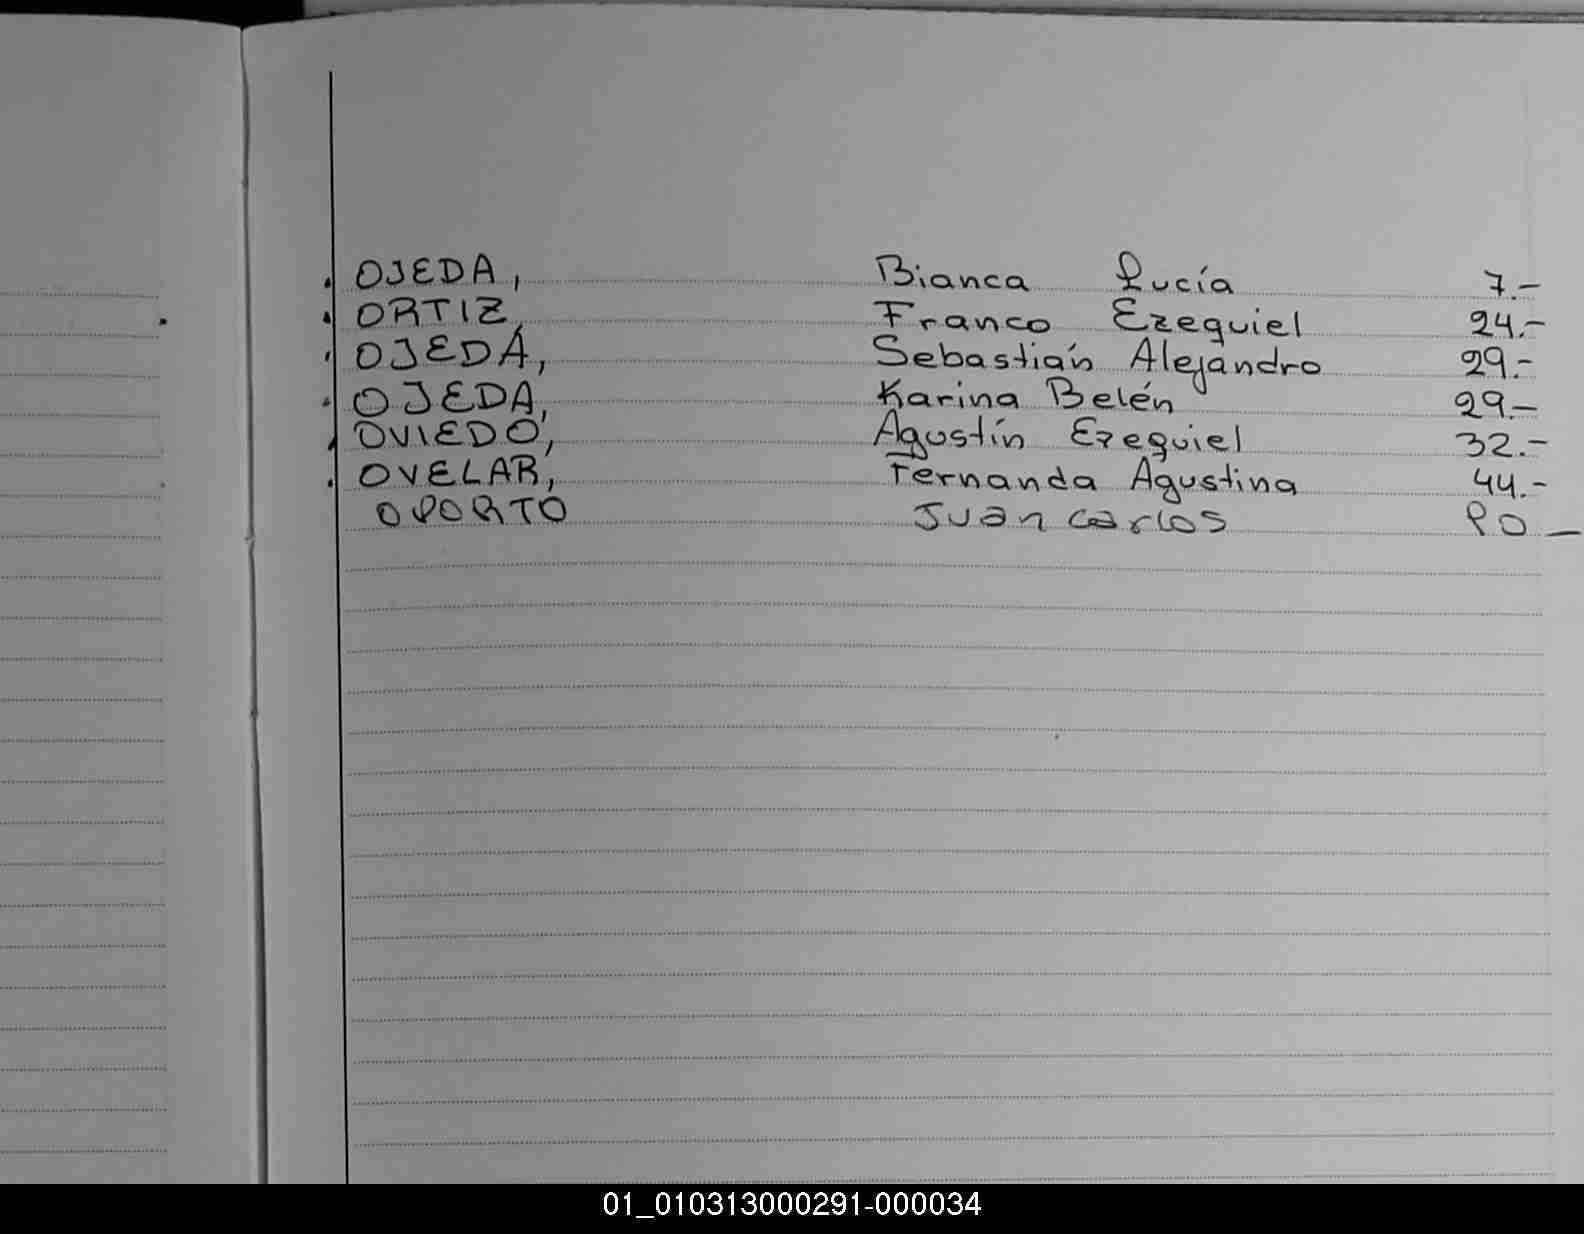 OJEDA, Bianca Lucía 7.-
ORTIZ, Franco Ezequiel 24.-
OJEDA, Sebastián Alejandro 29.-
OJEDA, Karina Belén 29.-
OVIEDO, Agustín Ezequiel 32.-
OVELAR, Fernanda Agustina 44.-
OPORTO Juan Carlos
01_010313000291-000034